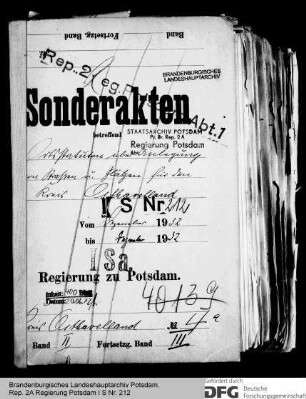 Band
Fortsetzg. Band
BRANDENBURGISCHES
LANDESHAUPTARCHIV
Rep. 2
Reg.
Abt. 1
Sonderakten
betreffend
STAATSARCHIV POTSDAM
Pr. Br. Rep. 2A
Regierung Potsdam
Straßen u. Plätzen für den
Kreis Osthavelland
I S Nr. 212
Vom 1932
bis 1932
I Sa
Regierung zu Potsdam.
Kreis Osthavelland No 4a
Band II Fortsetzg. Band III
Brandenburgisches Landeshauptarchiv Potsdam,
Rep. 2A Regierung Potsdam I S Nr. 212
Gefördert durch
DFG Deutsche
Forschungsgemeinschaft